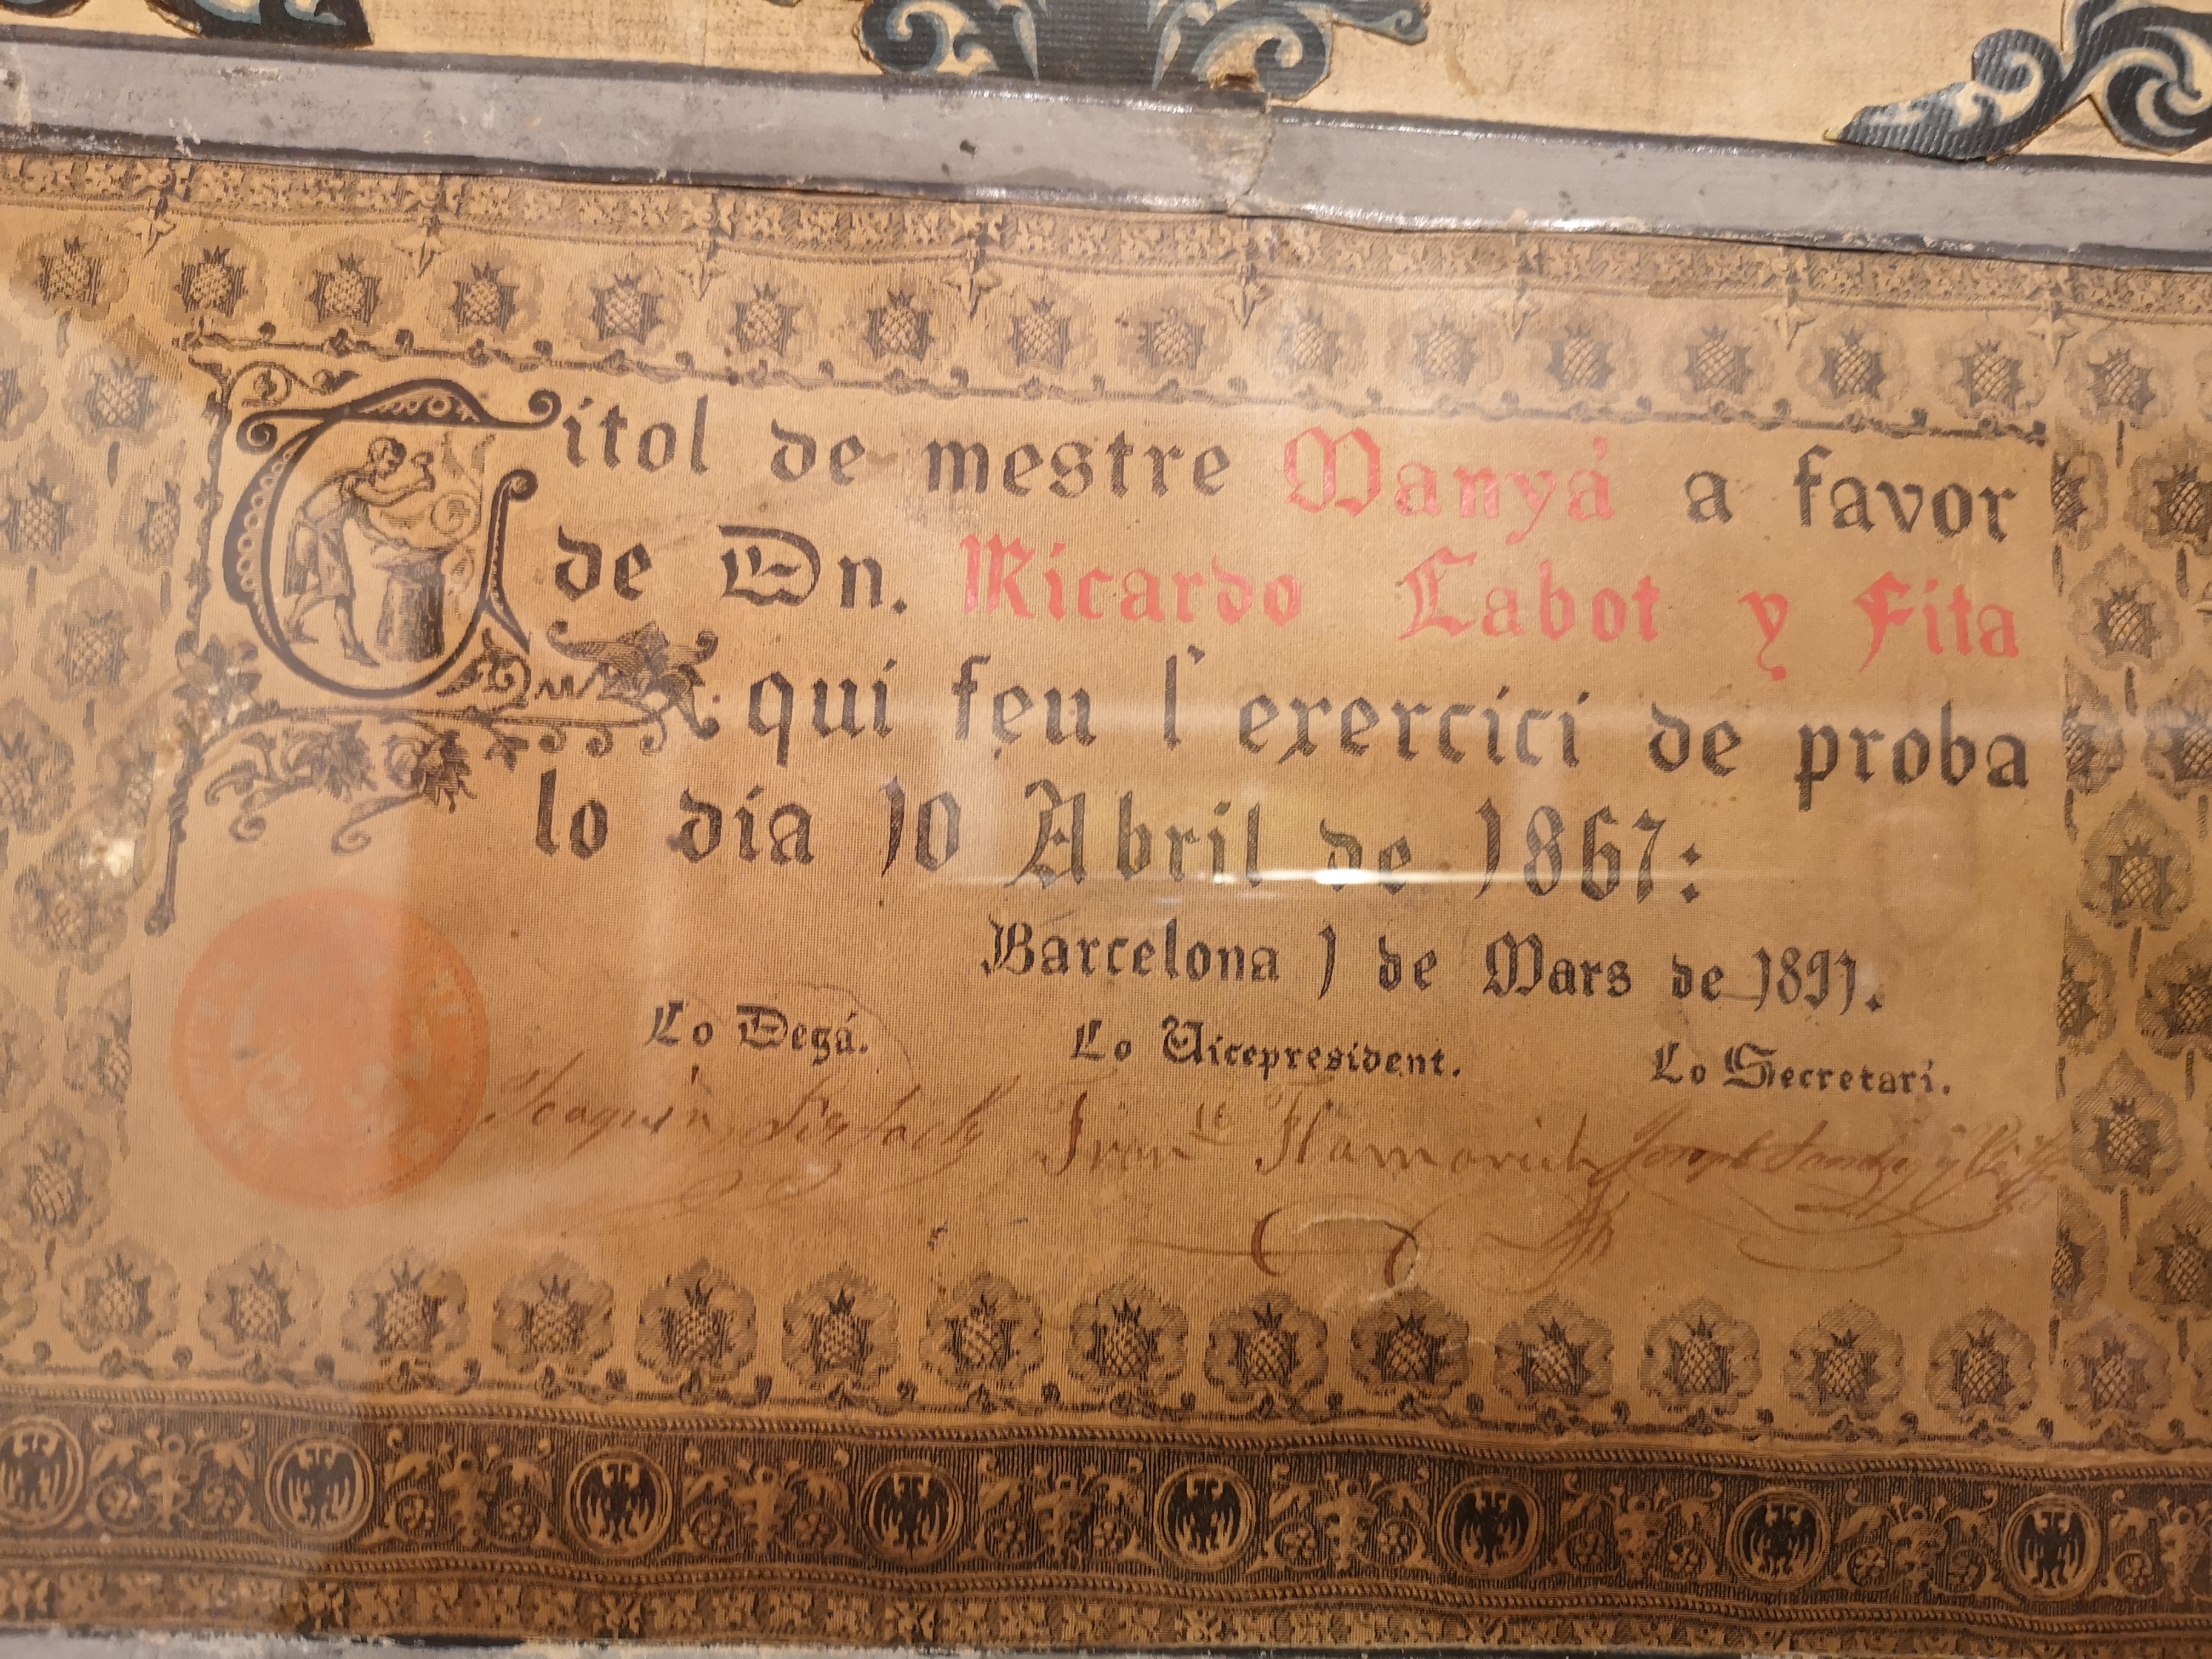 Títol de mestre Manyá a favor
de Dn. Ricardo Labot y Fita
qui feu l' exercici de proba
lo día 10 Abril de 1867:
Barcelona 1 de Mars de 1891.
Lo Degá. Lo Vicepresident. Lo Secretari.
Joaquin